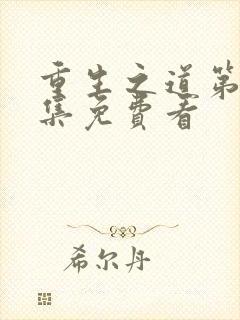 重生之道第
集免費看
希尔丹